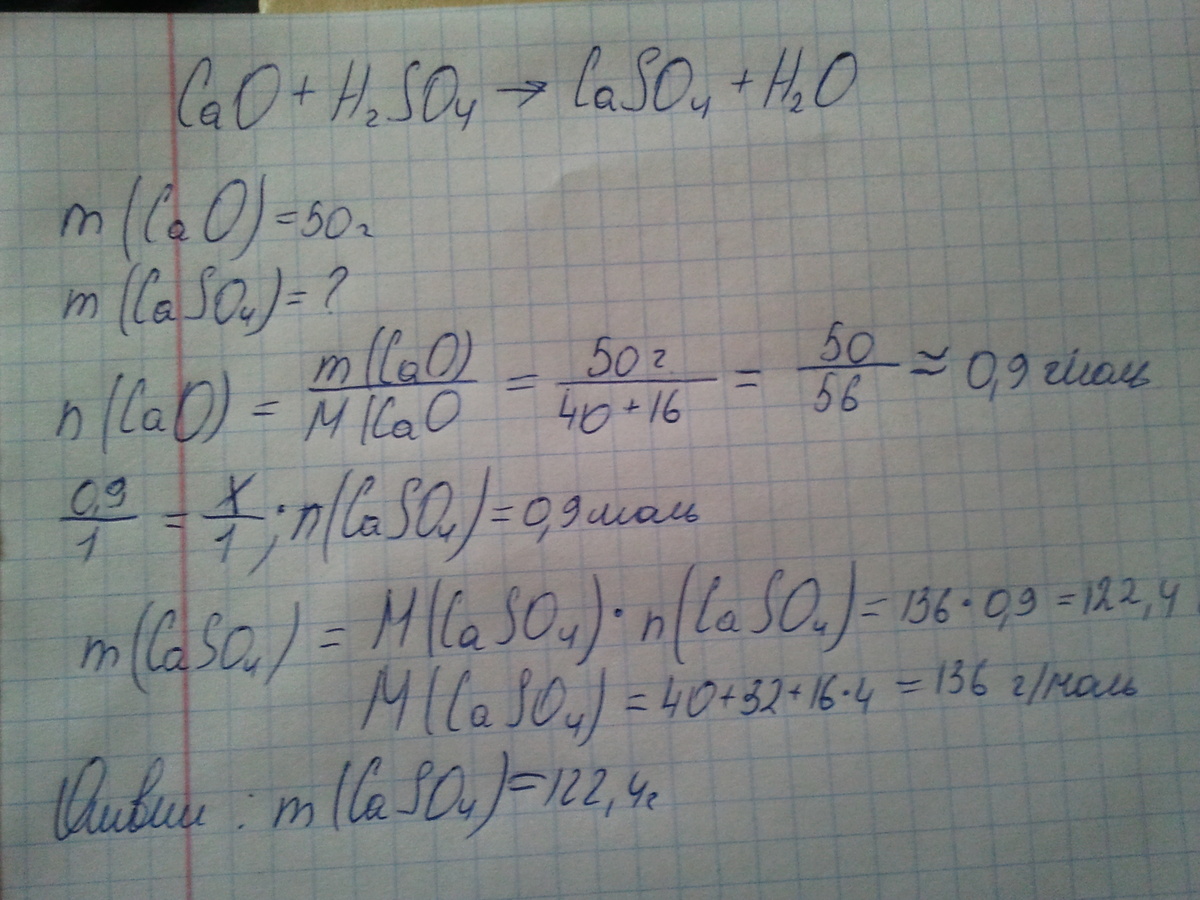 CaO + H₂SO₄ → CaSO₄ + H₂O
m(CaO) = 50г
m(CaSO₄) = ?
n(CaO) = m(CaO) / M(CaO = 50г / 40+16 = 50 / 56 ≈ 0,9 г/моль
0,9 / 1 = X / 1 ; n(CaSO₄) = 0,9 моль
m(CaSO₄) = M(CaSO₄) · n(CaSO₄) = 136 · 0,9 = 122,4
M(CaSO₄) = 40+32+16·4 = 136 г/моль
Ответ : m(CaSO₄) = 122,4г